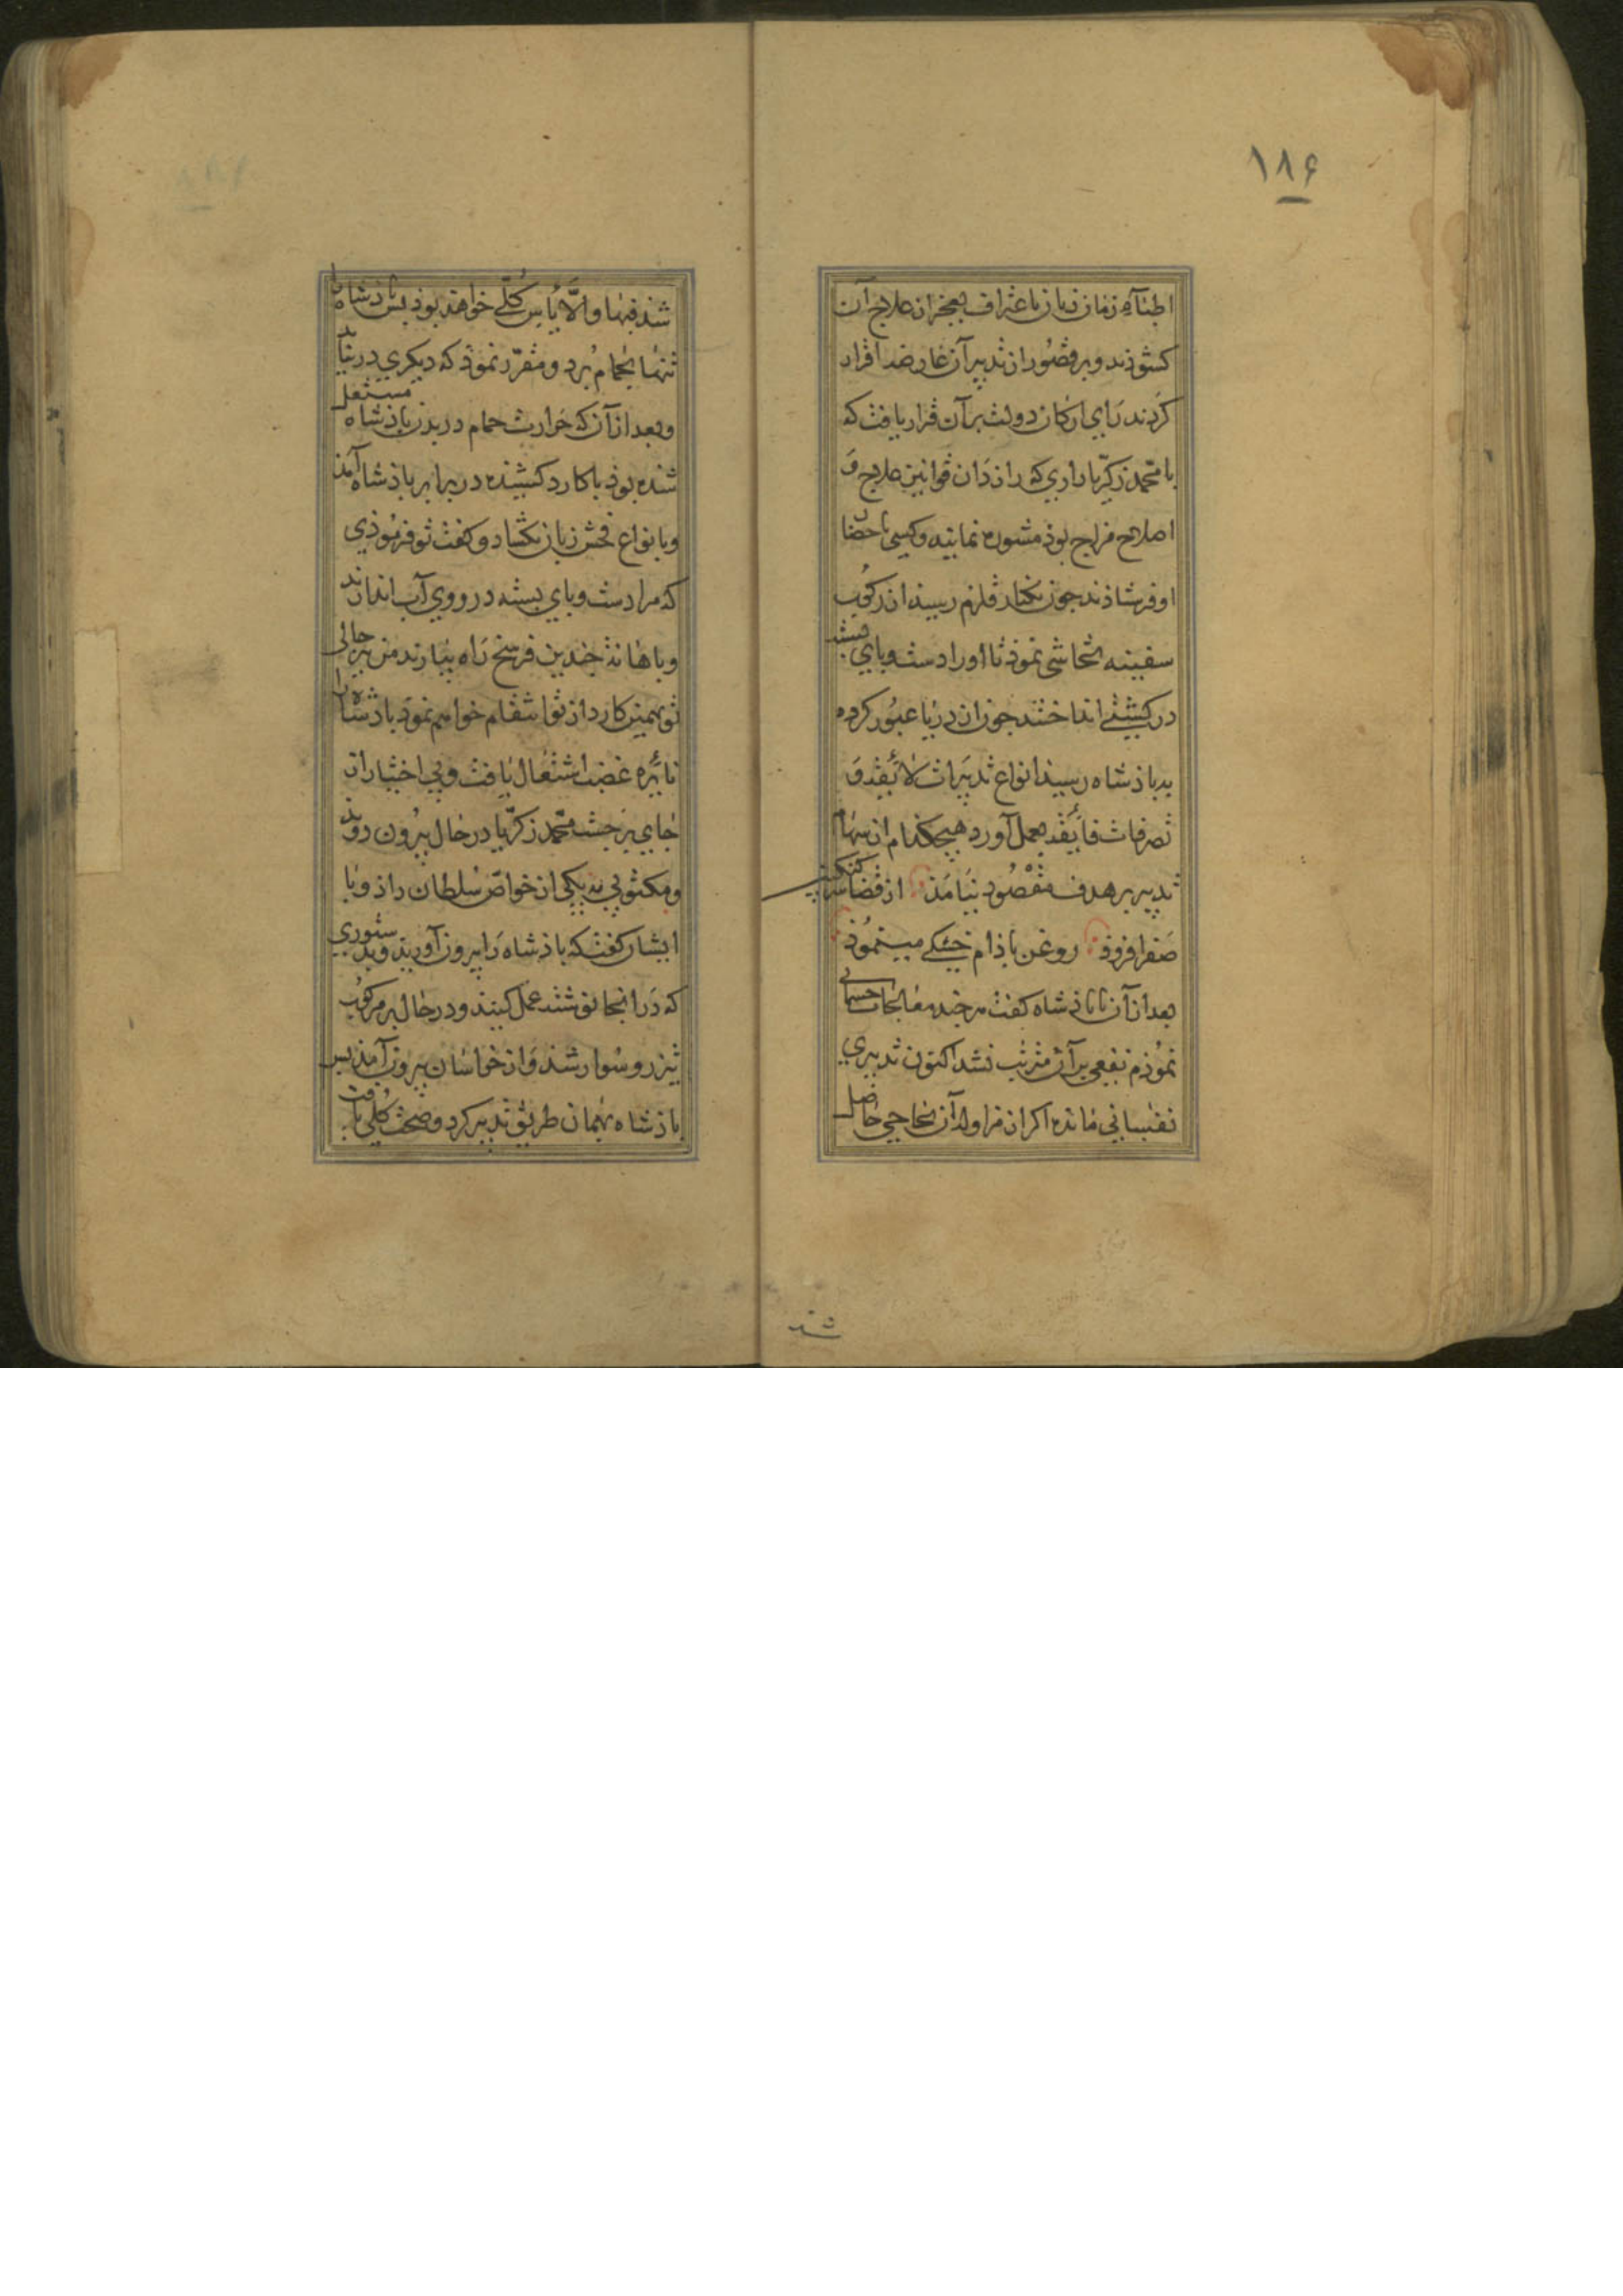 ۱۸۶
اطبّاءِ زمان زبان باعتراف بعجز از علاج آن
کشوذند و بر قصُور از تدبیر آن عارضه اقرار
کردند رَاي ارکان دولت بر آن قرار یافت که
با محمد زکریّا رازي که رازدَان قوانین علاج وَ
اصلاح مزاج بوذ مشوره نمایند و کسی باحضار
او فرستاذند جون بکنار قلزم رسید از رکُوب
سفینه تحاشی نموذ تا اورا دست و پاي بسته
در کشتی انداختند جون از دریا عبُور کرده
به باذشاه رسید انواع تدبیرات لائقه وَ
تصرفات فائقه بعمل آورد هیچکذام از سهام
تدبیر بر هدف مقصُود نیَامَذ از قضا سرکنکبین
صَفرا فزوذ روغن باذام خشکی مینمُوذ
بعد از آن با باذشاه کفت هر جند معالجات جسمانی
نمُوذم نفعی بر آن مترتب نشد اکنون تدبیري
نفسانی مانده اکر از مزاولهٔ آن نجاحی حاصل
شد
شذ فبها والّا یأس کُلّی خواهد بوذ پس باذشاه را
تنها بحمام بُرد و مقرّر نموذ که دیکري در نیاید
و بعد از آن که حَرارت حمام در بدن باذشاه مشتعل
شده بوذ با کارد کشیده در برابر باذشاه آمذ
و بانواع فحش زبان بکشاد و کفت تو فرموذي
که مرا دست و پاي بسته در روي آب اندازند
و باهانة جندین فرسخ رَاه بیارند من
تو بهمین کارد از تو انتقام خواهم نموَد باذشاه را
نائرهٔ غضب اشتعال یافت و بی اختیار از
جاي بر جست محمد زکریّا در حال بیرُون دوید
و مکتوبی به یکی از خواصّ سُلطان داذ و با
ایشان کفت که باذشاه رَا بیرون آورید و بدستوري
که دَر انجا نوشته عمل کنید و در حال بر مرکُوب
تیزرو سُوار شد وَ از خراسان بیرون آمذ پس
باذشاه بهمان طریق تدبیر کرد و صحت کُلی یافت